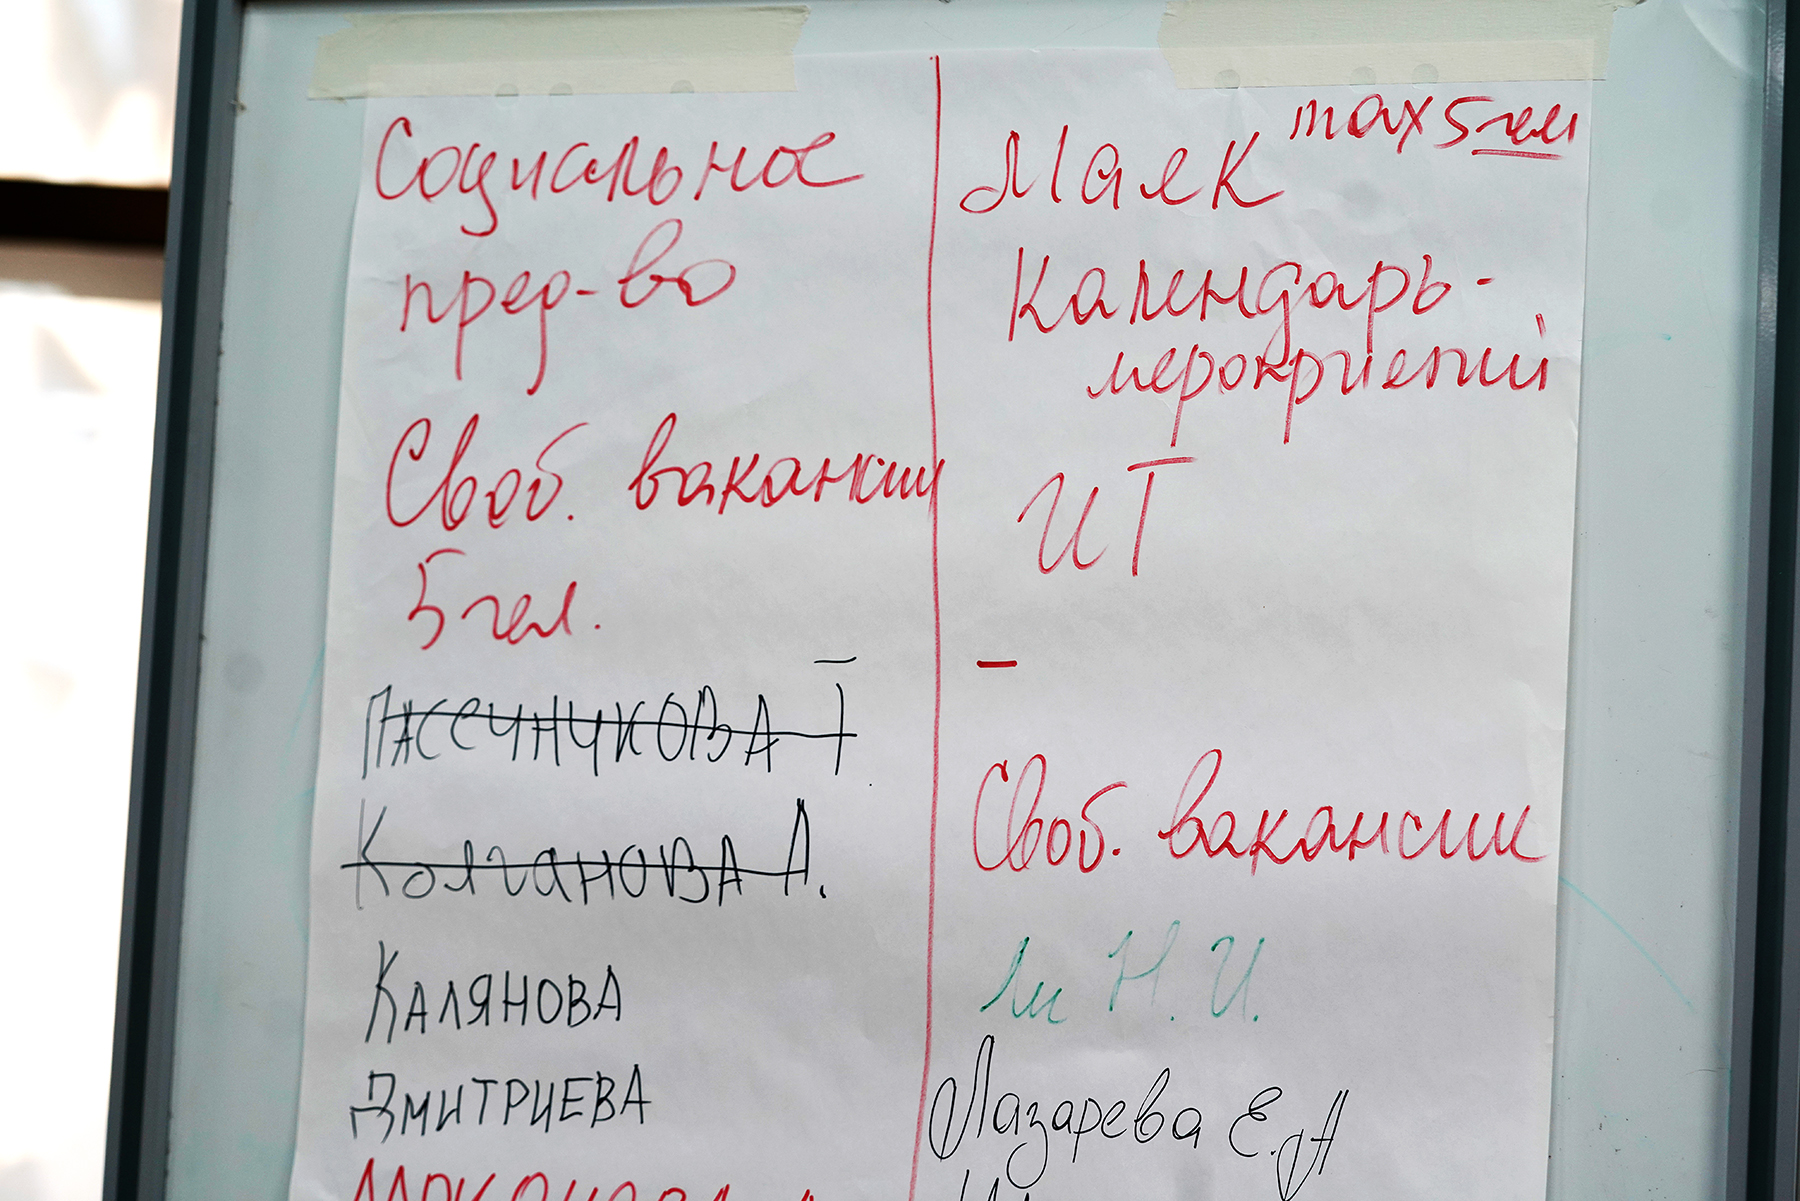 Социальное
пред-во
Своб. вакансии
5 чел.
Пасечникова Т
Колганова А.
Калянова
Дмитриева
max 5 чел
Маяк
Календарь-
мероприятий
ИТ
-
Своб. вакансии
Ли Н. И.
Лазарева Е. А